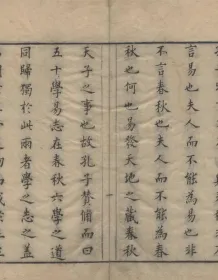 言易也夫人而不能為易也非
不言春秋也夫人而不能為春
秋也何也易發天地之藏春秋
天子之事也故孔子贊備而曰
五十學易志在春秋六學之道
同歸獨於此兩者學之志之蓋